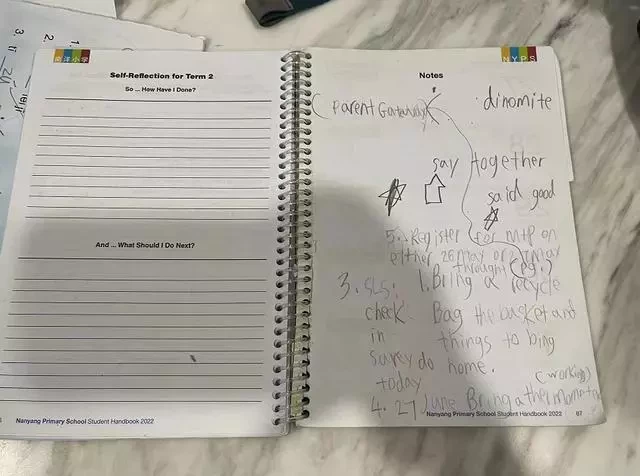 南洋小学
Self-Reflection for Term 2
So ... How Have I Done?
And ... What Should I Do Next?
Nanyang Primary School Student Handbook 2022
NYPS
Notes
(Parent Gateway)
dinomite
say together
said good
5. Register for MTP on
either 26 may or 27 may
throught (pg.)
3. SLS:
check
in
survey do
today
1. Bring a recycle
Bag the basket and
things to bing
home.
(working)
4. 27 June Bring a thermometer
Nanyang Primary School Student Handbook 2022
87